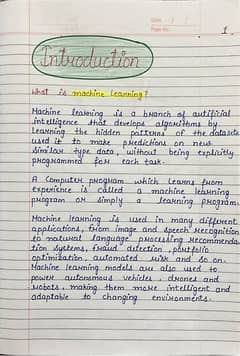 Date: / /
Page No:
1.
Introduction
What is machine learning?
Machine learning is a branch of artificial
intelligence that develops algorithms by
learning the hidden patterns of the datasets
used it to make predictions on new
similar type data, without being explicitly
programmed for each task.
A computer program which learns from
experience is called a machine learning
program or simply a learning program.
Machine learning is used in many different
applications, from image and speech recognition
to natural language processing recommenda-
tion systems, fraud detection, portfolio
optimization, automated risk and so on.
Machine learning models are also used to
power autonomous vehicles, drones and
robots, making them more intelligent and
adaptable to changing environments.